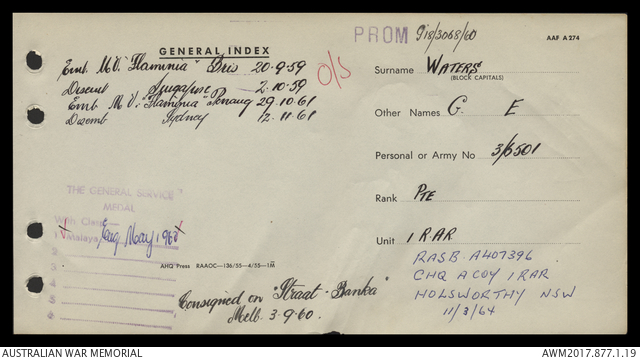 PROM 918/3068/60
AAF A 274
GENERAL INDEX
Emb M.V. "Flaminia" Bris 20-9-59
Disemb Singapore 2-10-59
Emb M.V. "Flaminia" Penang 29.10.61
Disemb Sydney 12.11.61
O/S
Surname WATERS
(BLOCK CAPITALS)
Other Names G. E
Personal or Army No. 3/6501
Rank PTE
Unit 1 RAR
RASB. A407396
CHQ A COY 1 RAR
HOLSWORTHY NSW
11/3/64
THE GENERAL SERVICE
MEDAL
With Clasp
1 Malaya May 1960
2
3
4
5
6
AHQ Press RAAOC—136/55—4/55—1M
Consigned on "Straat - Banka"
Melb. 3-9-60.
AUSTRALIAN WAR MEMORIAL
AWM2017.877.1.19